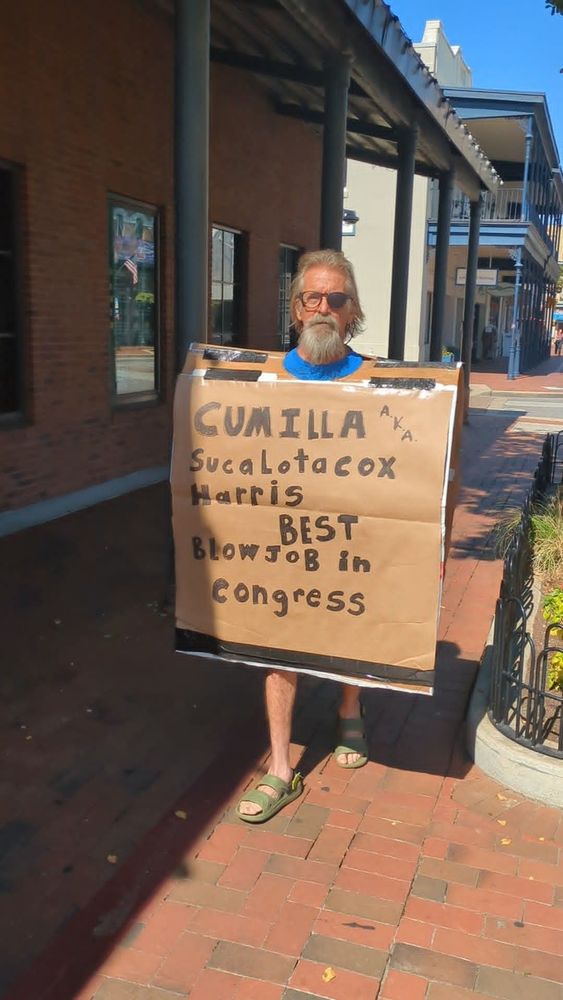 CUMILLA A.K.A.
SucaLotacox
Harris
BEST
BLowJoB in
congress